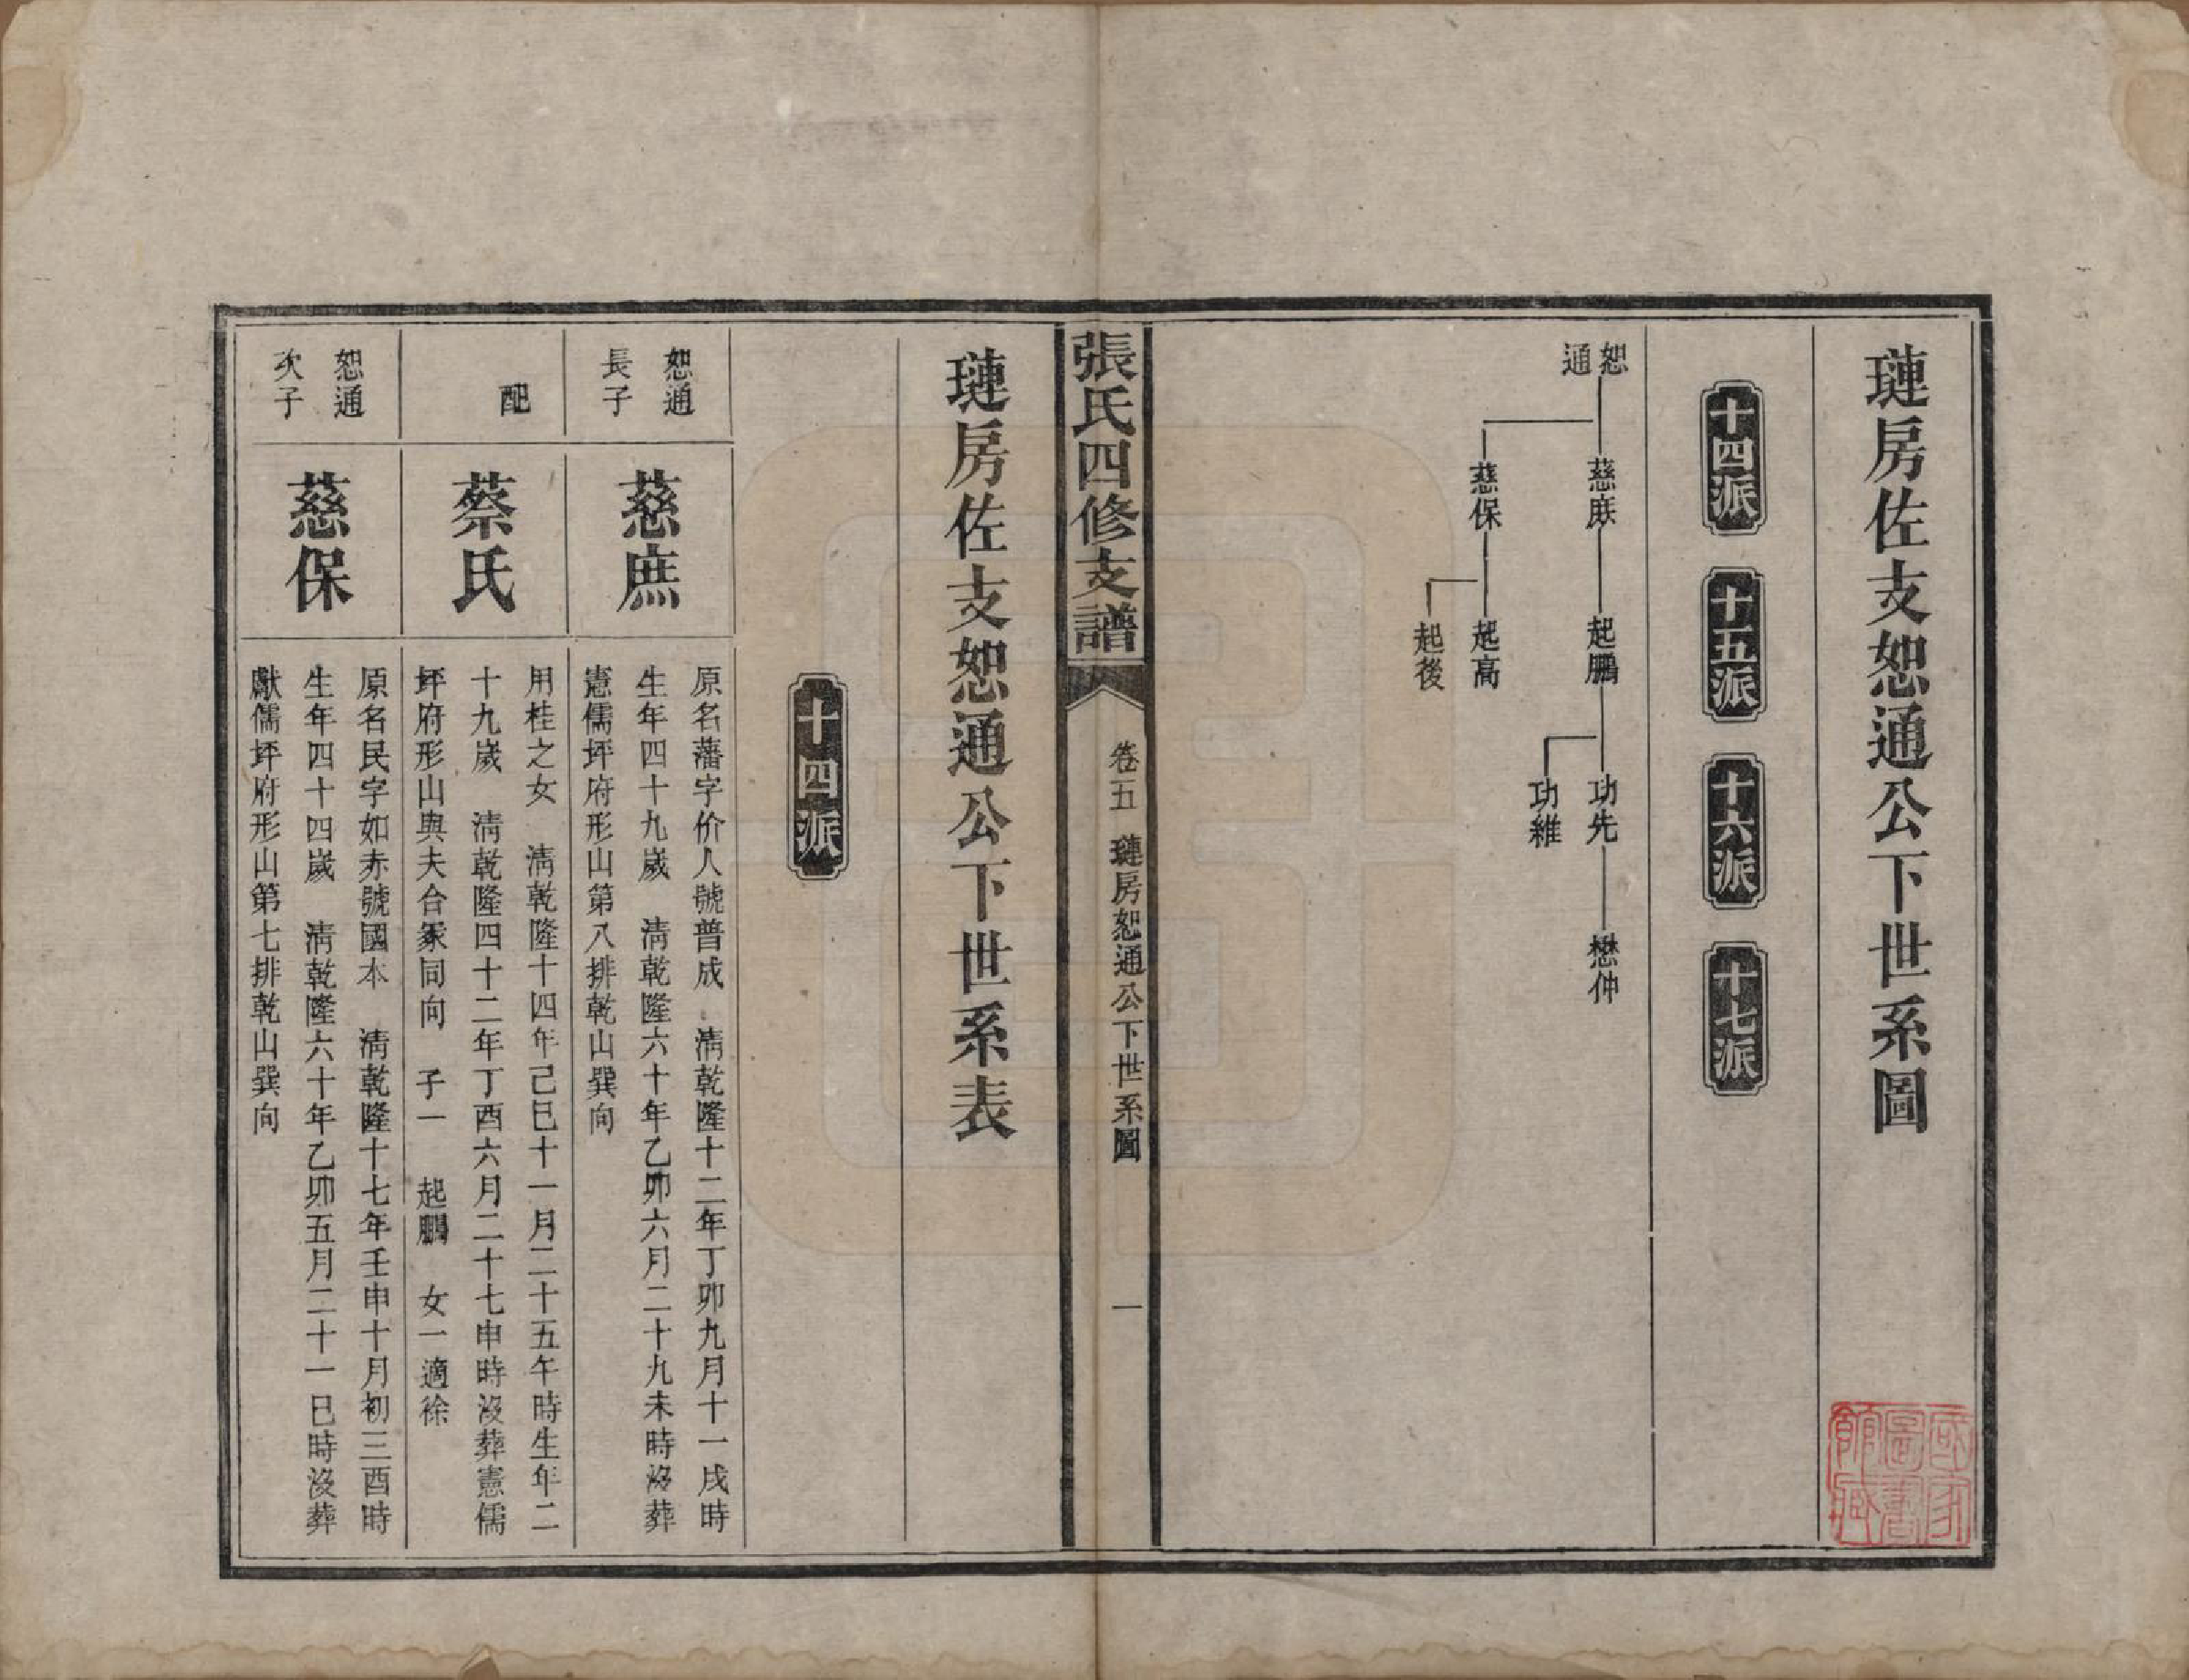 璉房佐支恕通公下世系圖
十四派
十五派
十六派
十七派
恕通
慈庶
起鵬
功先
懋仲
功維
慈保
起高
起後
張氏四修支譜
卷五
璉房恕通公下世系圖
一
璉房佐支恕通公下世系表
十四派
恕通
長子
慈庶
原名藩字价人號普成 清乾隆十二年丁卯九月十一戌時
生年四十九歲 清乾隆六十年乙卯六月二十九未時沒葬
憲儒坪府形山第八排乾山巽向
配
蔡氏
用桂之女 清乾隆十四年己巳十一月二十五午時生年二
十九歲 清乾隆四十二年丁酉六月二十七申時沒葬憲儒
坪府形山與夫合冢同向 子一 起鵬 女一適徐
恕通
次子
慈保
原名民字如赤號國本 清乾隆十七年壬申十月初三酉時
生年四十四歲 清乾隆六十年乙卯五月二十一巳時沒葬
獻儒坪府形山第七排乾山巽向
國家
圖書
館藏